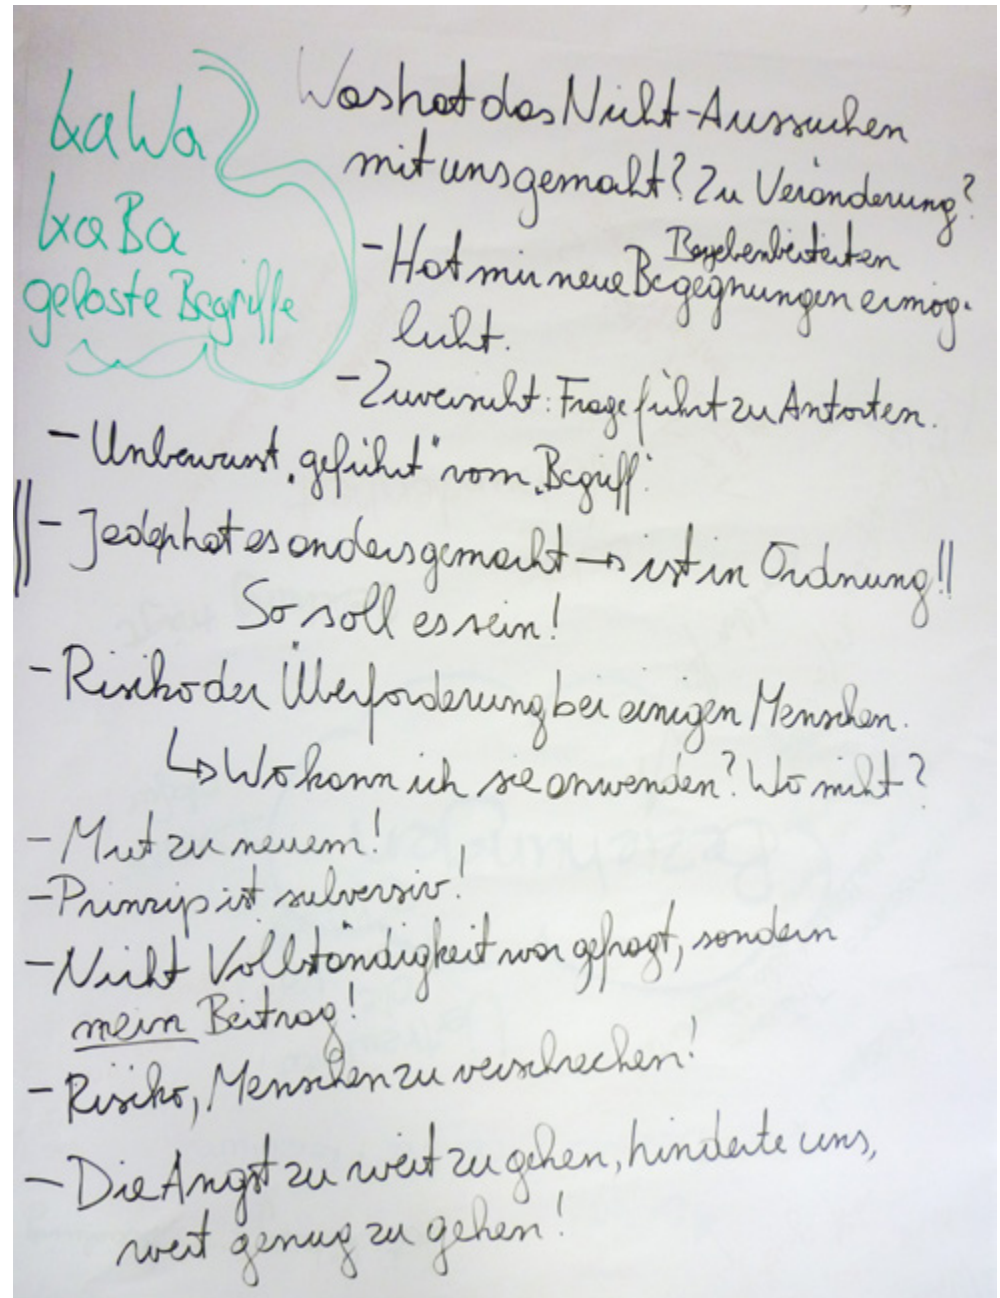 KaWa
KaBa
geloste Begriffe
Was hat das Nicht-Aussuchen
mit uns gemacht? Zu Veränderung?
Begebenheiten
- Hat mir neue Begegnungen ermög-
licht.
- Zuversicht: Frage führt zu Antorten.
- Unbewusst „geführt" vom „Begriff".
- Jede hat es anders gemacht → ist in Ordnung!!
So soll es sein!
- Risiko der Überforderung bei einigen Menschen.
↳ Wo kann ich sie anwenden? Wo nicht?
- Mut zu neuem!
- Prinzip ist subversiv!
- Nicht Vollständigkeit war gefragt, sondern
mein Beitrag!
- Risiko, Menschen zu verschrecken!
- Die Angst zu weit zu gehen, hinderte uns,
weit genug zu gehen!